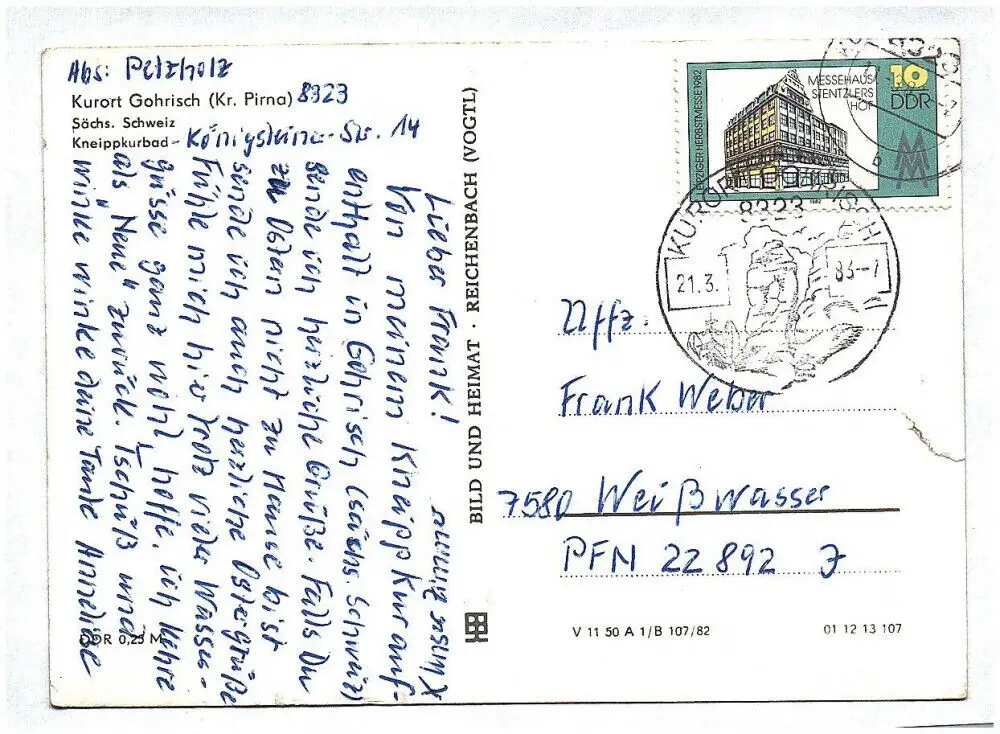 Abs: Petzholz
Kurort Gohrisch (Kr. Pirna) 8323
Sächs. Schweiz
Kneippkurbad - Königsteiner-Str. 14
Lieber Frank!
Von meinem Kneippkurauf-
enthalt in Gohrisch (sächs. Schweiz)
sende ich herzliche Grüße. Falls Du
zu Ostern nicht zu Hause bist
sende ich auch herzliche Ostergrüße
Fühle mich hier trotz vieler Wasser-
güsse ganz wohl, hoffe, ich kehre
als "Neue" zurück. Tschüß und
winke winke deine Tante Anneliese
X unser Zimmer
DDR 0,25 M
BILD UND HEIMAT · REICHENBACH (VOGTL)
LEIPZIGER HERBSTMESSE 1982
MESSEHAUS
STENTZLERS
HOF
10
DDR
MM
1982
8323
b
KURORT GOHRISCH
8323
21.3.
83-7
Uffz.
Frank Weber
7580 Weißwasser
PFN 22 892 J
V 11 50 A 1/B 107/82
01 12 13 107